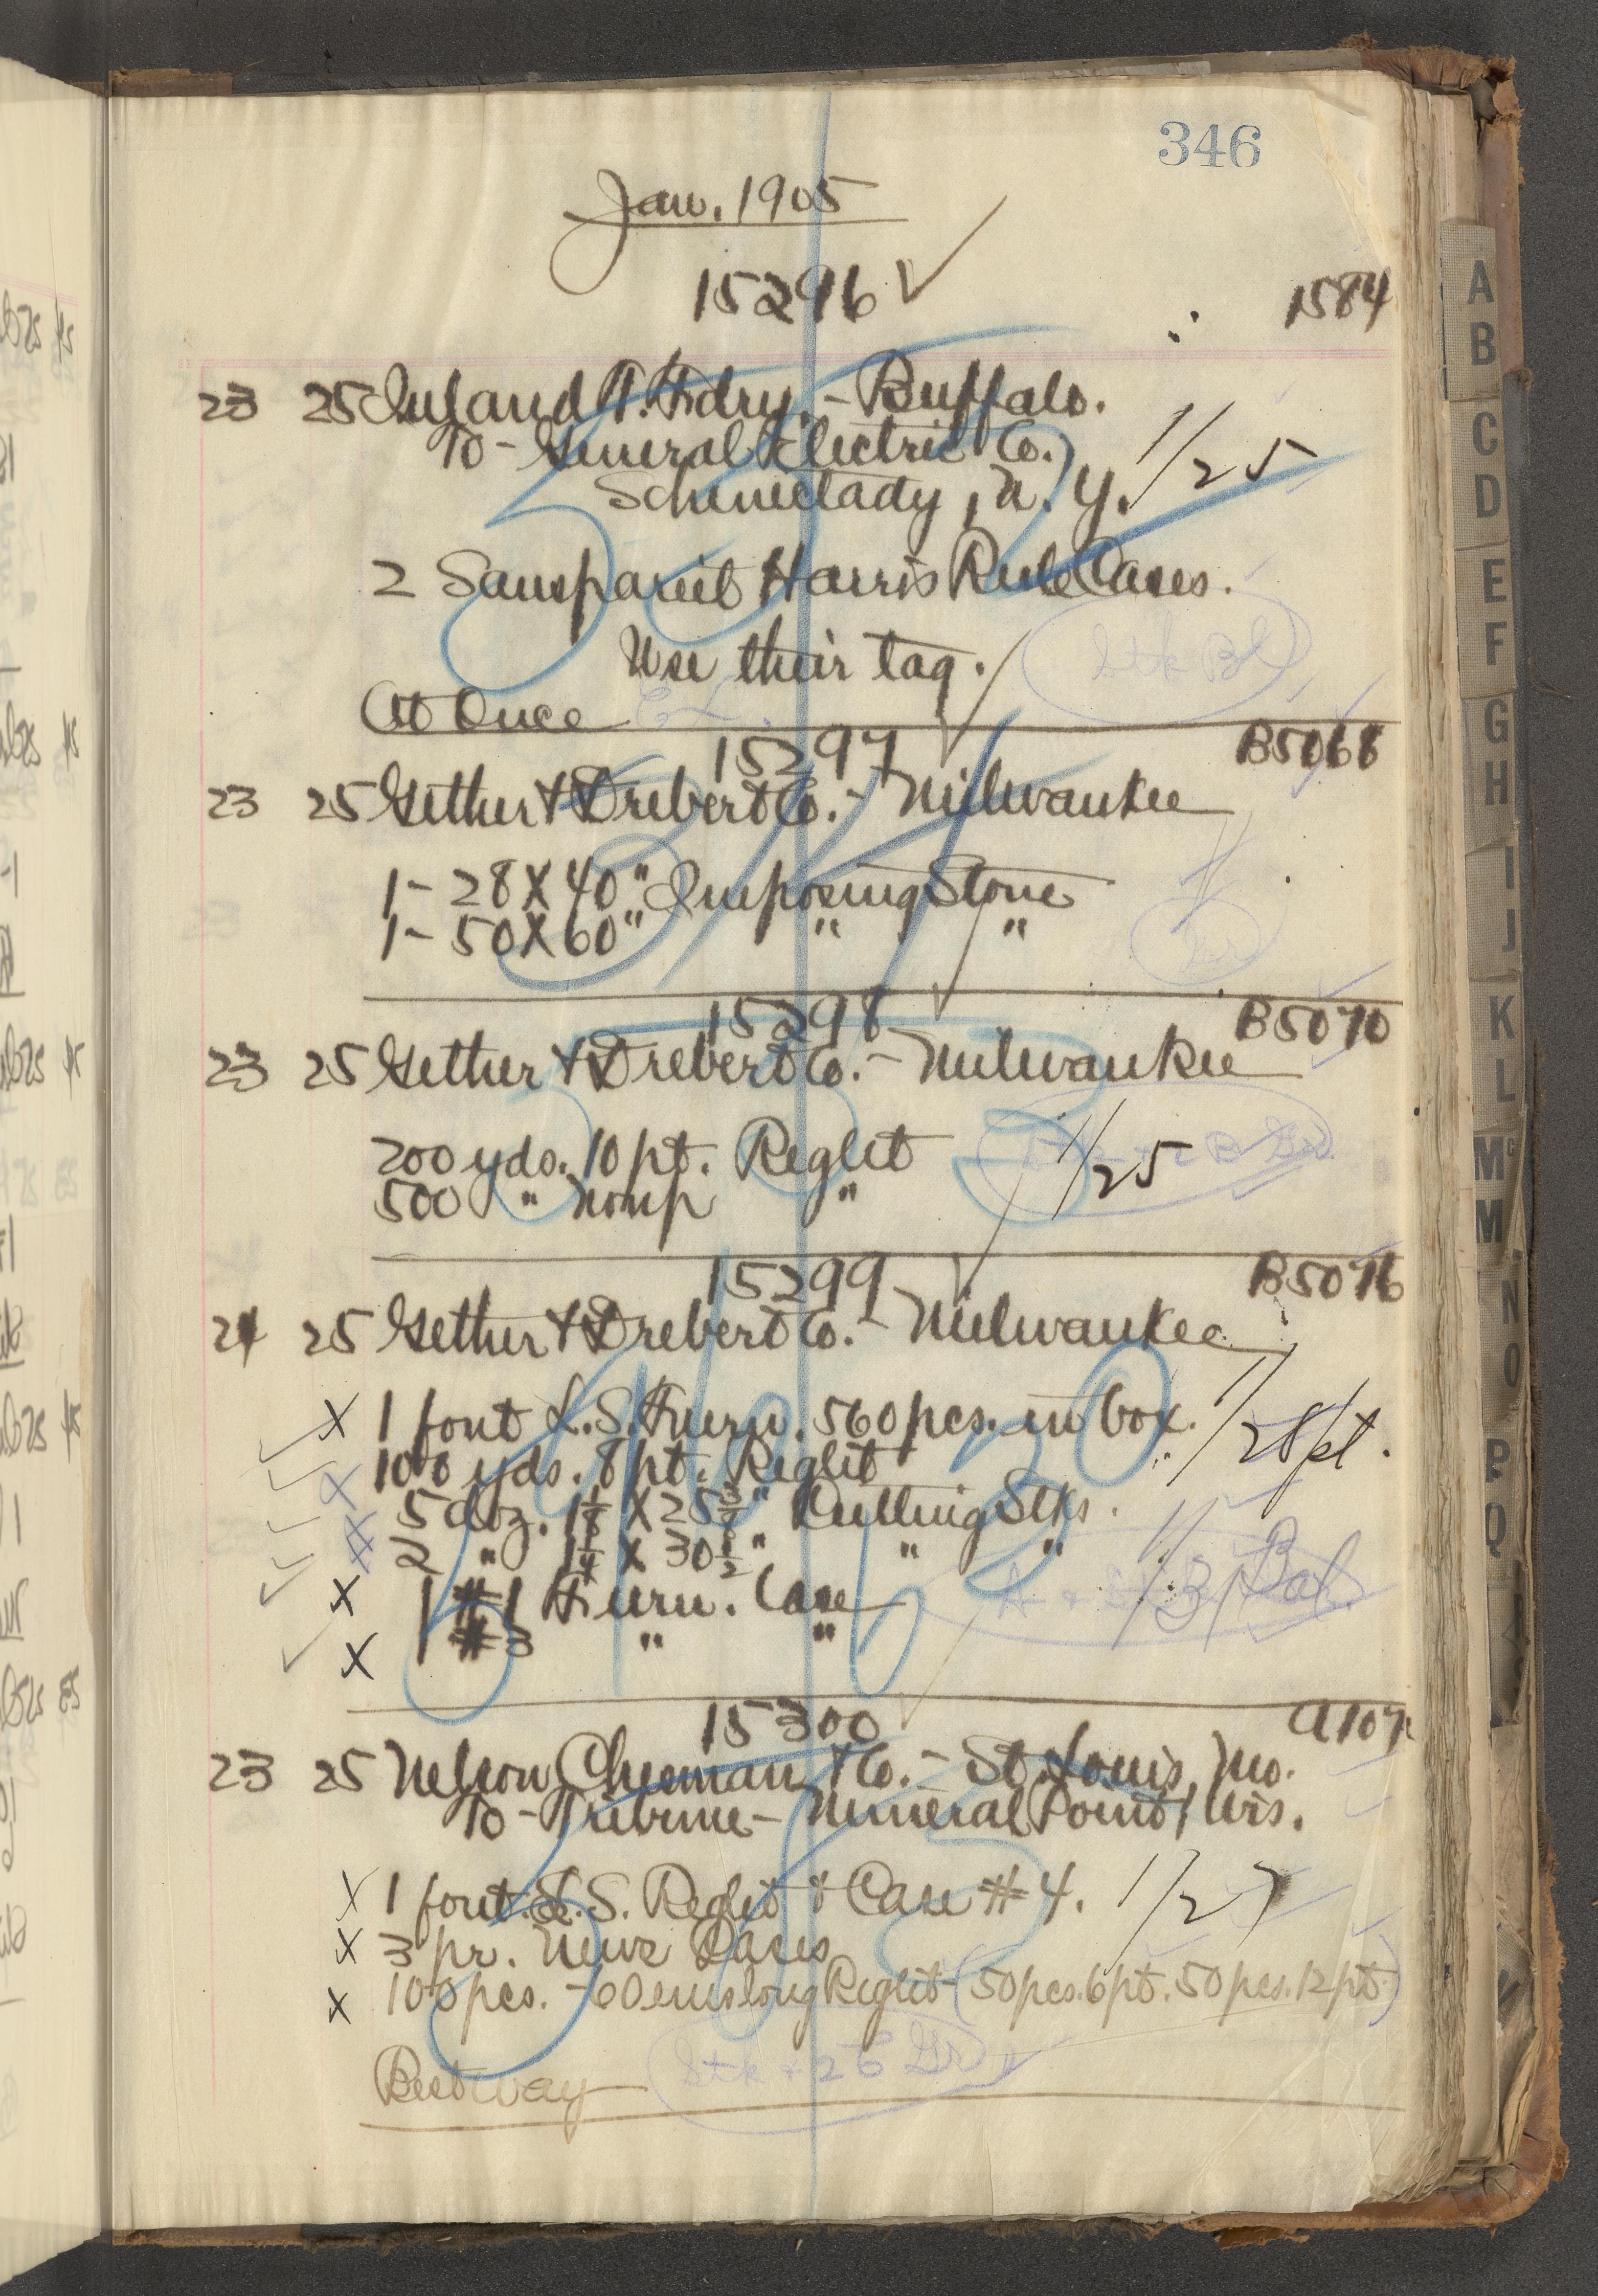 346
Jan. 1905
15296 1584
23 25 Inland T. Fdry. - Buffalo.
To - General Electric Co.
Schenectady, N. Y. 1/25
2 Sanspareil Harris Rule Cases.
Use their tag.
Stk Bl
At Once
15297 B5068
23 25 Gether & Drebert Co. - Milwaukee
1 - 28 X 40" Imposing Stone
1 - 50 X 60" " "
15298 B5070
23 25 Gether & Drebert Co. - Milwaukee
200 yds. 10 pt. Reglet
500 " Nonp " 1/25
15299 B5076
24 25 Gether & Drebert Co. - Milwaukee
X 1 font L. S. Furn. 560 pcs. in box. 1/28 pt.
100 yds. 8 pt. Reglet
5 doz. 1 1/8 X 25 3/8" Cutting Stks.
2 " 1 1/4 X 30 1/2" " "
X 1 #1 Furn. Case 1/31 Bal
X 1 #3 " "
15300 A107
23 25 Nelson Chesman & Co. - St. Louis, Mo.
To - Tribune - Mineral Point, Wis.
X 1 font L. S. Reglet & Case #4. 1/27
X 3 pr. News Cases
X 100 pcs. - 60 ems long Reglet (50 pcs. 6 pt. 50 pcs. 12 pt.)
Stk + 2 C Gr
Best way
A
B
C
D
E
F
G
H
I
J
K
L
Mc
M
N
O
P
Q